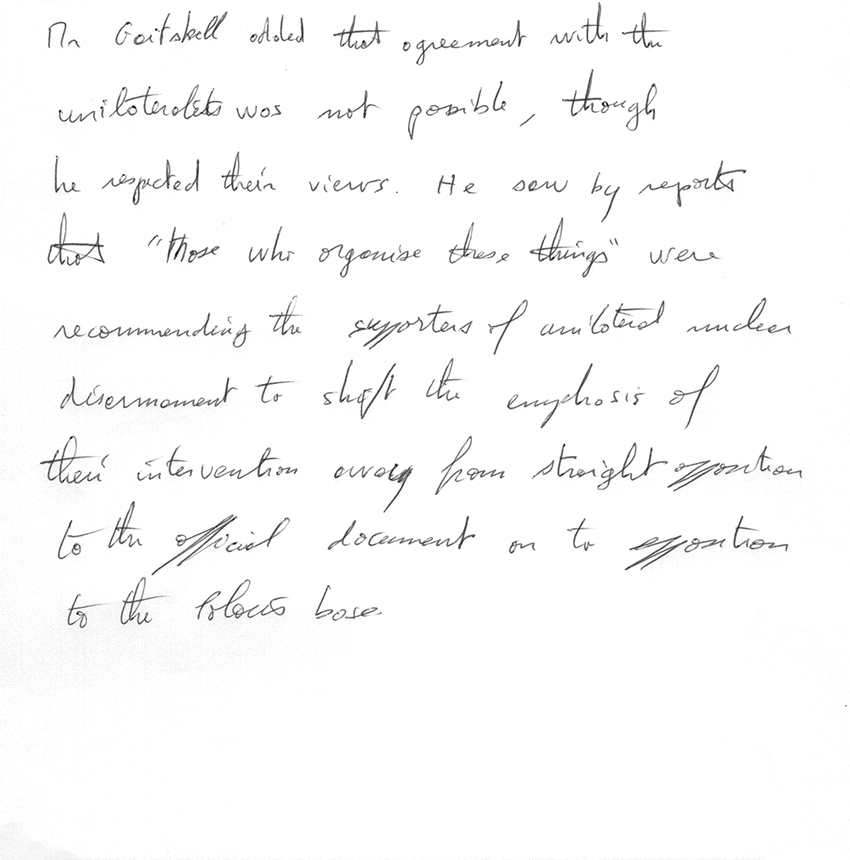 Mr Gaitskell added that agreement with the
unilateralists was not possible, though
he respected their views. He saw by reports
that "those who organise these things" were
recommending the supporters of unilateral nuclear
disarmament to shift the emphasis of
their intervention away from straight opposition
to the official document on to opposition
to the Polaris base.